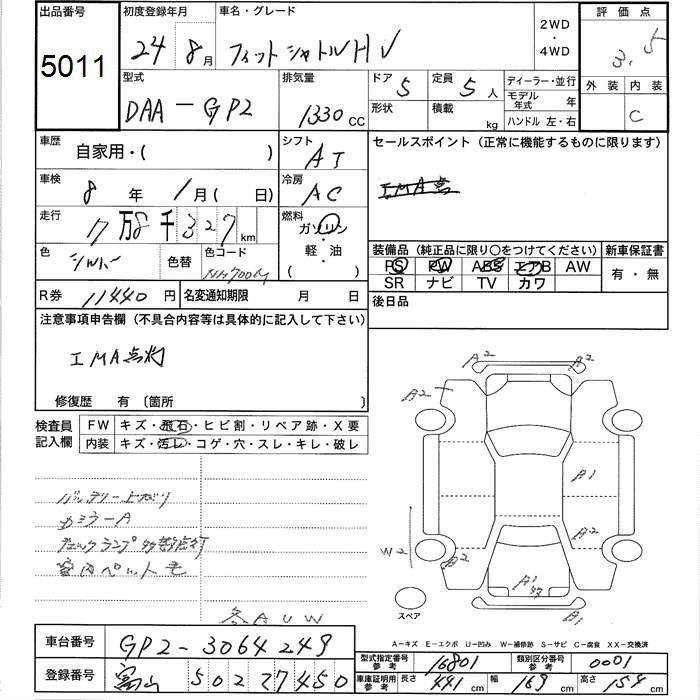 出品番号 初度登録年月 車名・グレード 2WD・4WD 評価点
5011 24年 8月 フィットシャトルHV 3.5
型式 排気量 ドア 定員 ディーラー・並行 外装 内装
DAA-GP2 1330cc 5 5人 モデル年式 年 C
形状 積載 kg ハンドル 左・右
車歴 シフト セールスポイント（正常に機能するものに限ります）
自家用・( ) AT
車検 冷房 IMA点
8年 1月( 日) AC
走行 燃料
17万8千327km ガソリン・軽・油 ( )
色 色替 色コード 装備品（純正品に限り○をつけてください） 新車保証書
シルバー NH700M PS PW ABS エアB AW 有・無
SR ナビ TV カワ
R券 11440円 名変通知期限 月 日 後日品
注意事項申告欄（不具合内容等は具体的に記入して下さい）
IMA点灯
修復歴 有〔箇所 〕
検査員記入欄 FW キズ・飛石・ヒビ割・リペア跡・X要
内装 キズ・汚レ・コゲ・穴・スレ・キレ・破レ
バッテリー上がり
カミラーA
チェックランプ多数点灯
室内ペット毛
各AUW
A2 A2
A2
A1
W2 A2
B2
A1
B1
スペア
A-キズ E-エクボ U-凹み W-補修跡 S-サビ C-腐食 XX-交換済
車台番号 GP2-3064249
型式指定番号参考 16801 類別区分番号参考 0001
登録番号 富山 502 27450
車庫証明用参考 長さ 441cm 幅 169cm 高さ 154cm